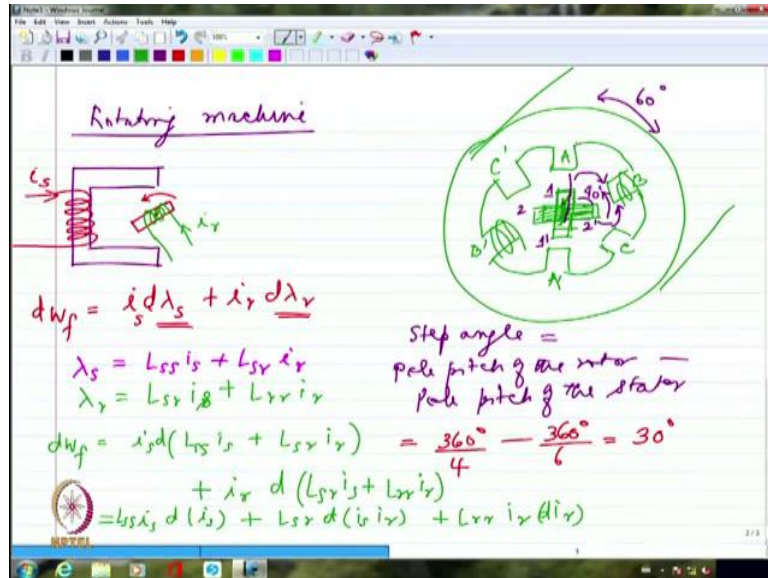 Note3 - Windows Journal
File Edit View Insert Actions Tools Help
100%
B I
Rotating machine
60°
i_s
i_r
A
B
C
A'
B'
C'
1
1'
2
2'
90°
dW_f = i_s dλ_s + i_r dλ_r
λ_s = L_ss i_s + L_sr i_r
λ_r = L_sr i_s + L_rr i_r
dW_f = i_s d(L_ss i_s + L_sr i_r)
+ i_r d(L_sr i_s + L_rr i_r)
= L_ss i_s d(i_s) + L_sr d(i_s i_r) + L_rr i_r (di_r)
Step angle =
pole pitch of the rotor —
pole pitch of the stator
= 360°/4 - 360°/6 = 30°
NPTEL
2/3